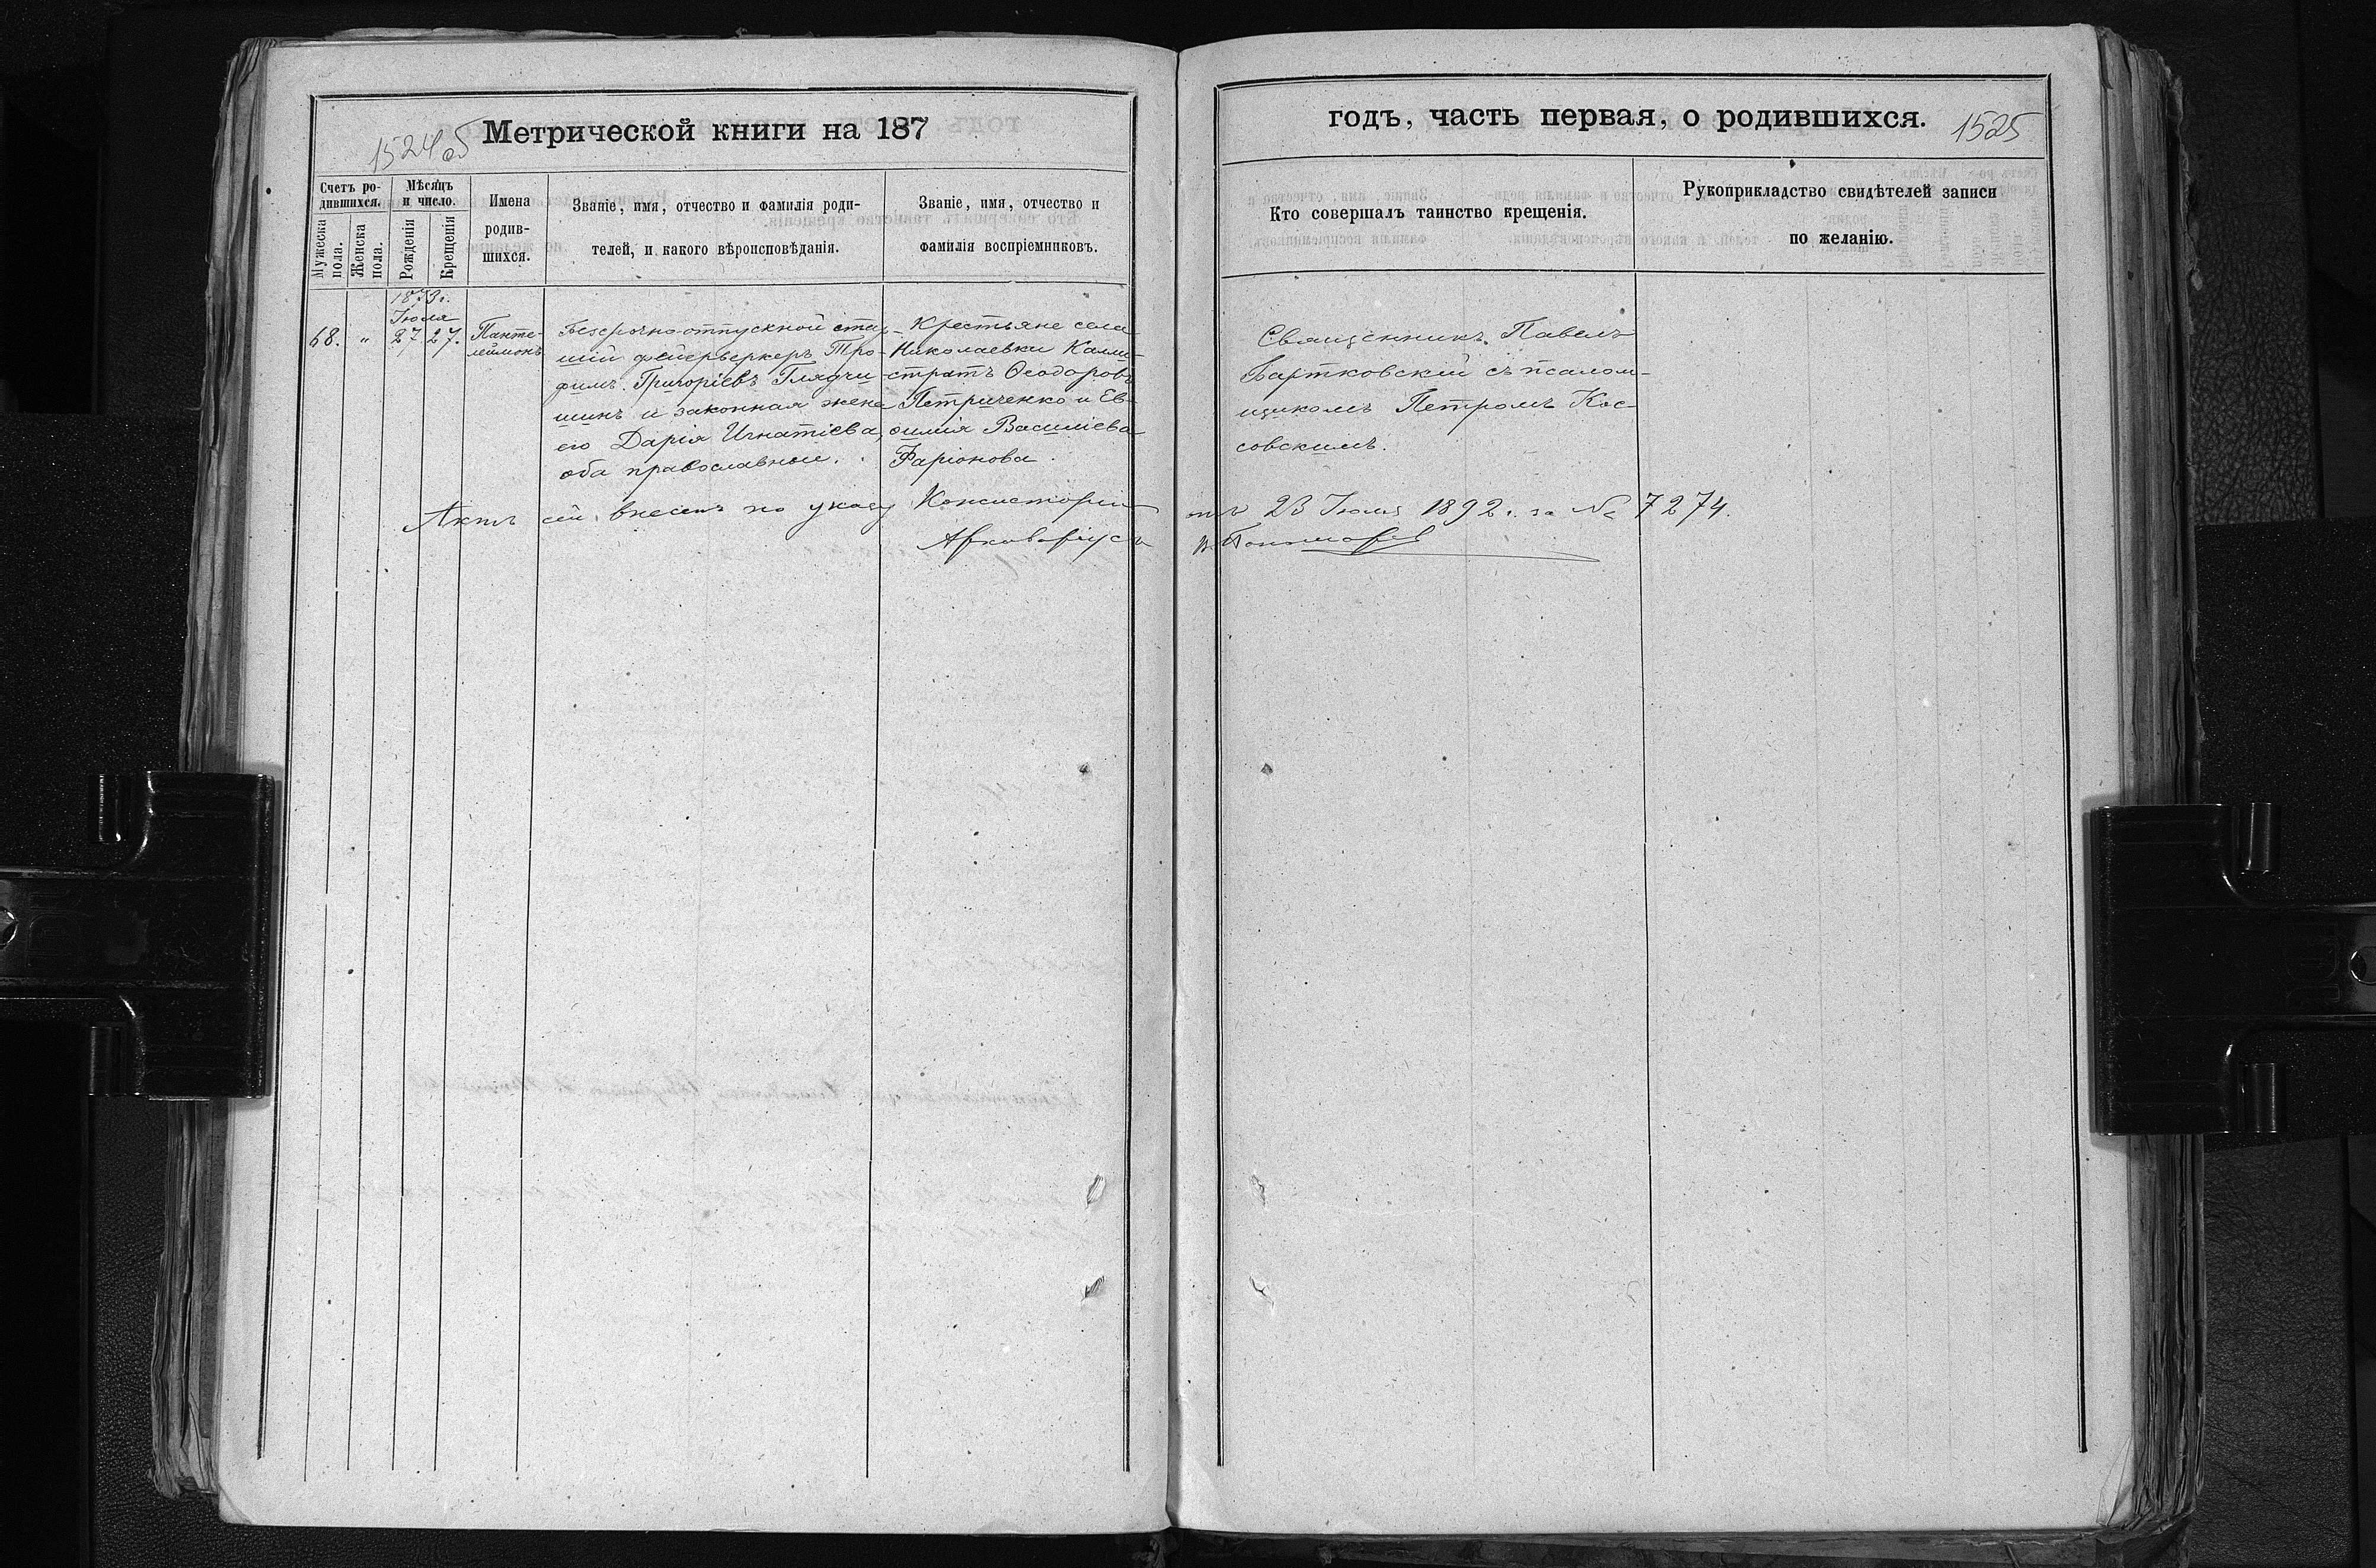 1524 об
Метрической книги на 187
Счетъ ро-
дившихся.
Мужеска
пола.
Женска
пола.
Мѣсяцъ
и число.
Рожденія
Крещенія
Имена
родив-
шихся.
Званіе, имя, отчество и фамилія роди-
телей, и какого вѣроисповѣданія.
Званіе, имя, отчество и
фамилія воспріемниковъ.
1873 г.
Іюля
68. " 27 27.
Панте-
леймонъ
Безсрочно-отпускной стар-
шій фейерверкеръ Тро-
фимъ Григоріевъ Глядчи-
шинъ и законная жена
его Дарія Игнатіева,
оба православные.
Крестьяне села
Николаевки Калли-
стратъ Ѳеодоровъ
Петриченко и Ев-
ѳимія Василіева
Фаріонова.
Актъ сей внесенъ по указу Консисторіи
Архиваріусъ
годъ, часть первая, о родившихся.
1525
Кто совершалъ таинство крещенія.
Рукоприкладство свидѣтелей записи
по желанію.
Священникъ Павелъ
Бартковскій съ псалом-
щикомъ Петромъ Кос-
совскимъ.
отъ 23 Іюля 1892 г. за № 7274.
Пономаревъ